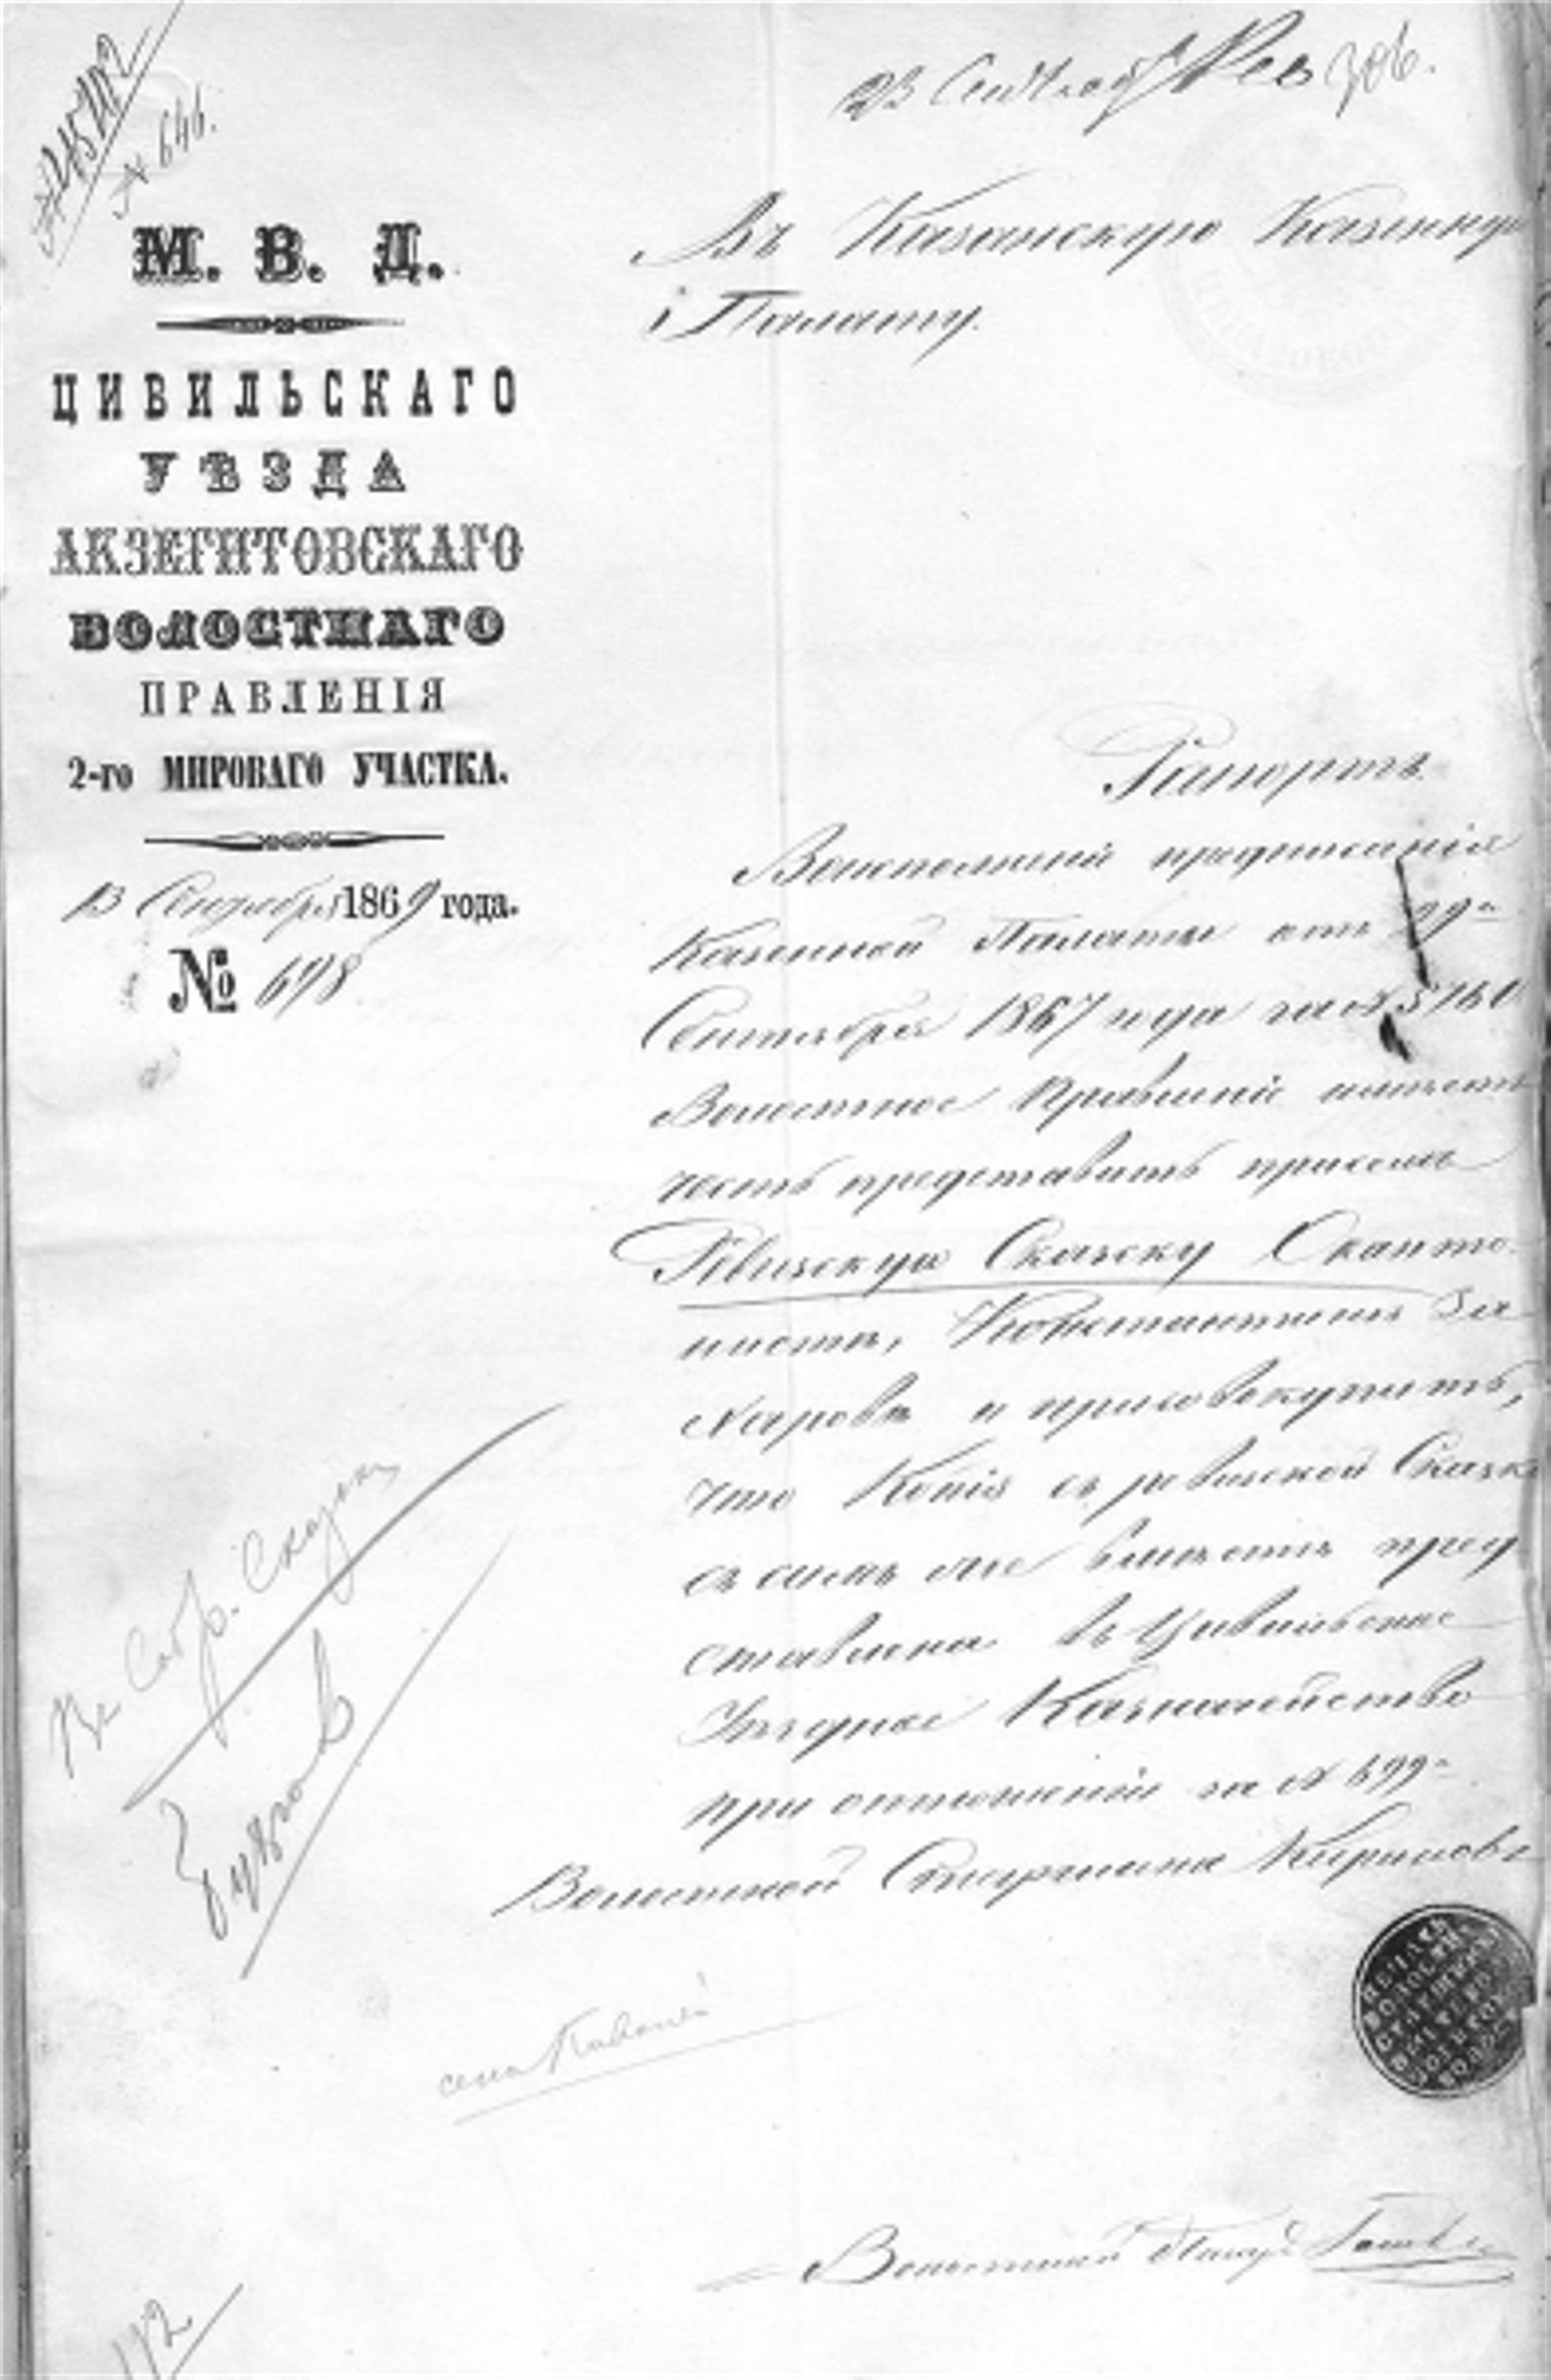 № 646.
23 Сентяб 306.
М. В. Д.
ЦИВИЛЬСКАГО
УѢЗДА
АКЗЕГИТОВСКАГО
ВОЛОСТНАГО
ПРАВЛЕНІЯ
2-го МИРОВАГО УЧАСТКА.
13 Сентября 1869 года.
№ 698
Въ Казанскую Казенную
Палату.
Рапортъ
Воисполненій предписанія
Казенной Палаты отъ 29го
Сентября 1867 года за № 5760
Волостное Правленіе имѣетъ
честь представить при семъ
Ревизскую Сказку Скопто
Константинъ За
харова и присовокупить,
что Копія съ ревизской Сказки
съ симъ вмѣстѣ пред
ставлена въ Цивильское
Уѣздное Казначейство
при отношеніи за № 699
Волостной Старшина Кириловъ
Къ Сказкѣ
Волостной Писарь